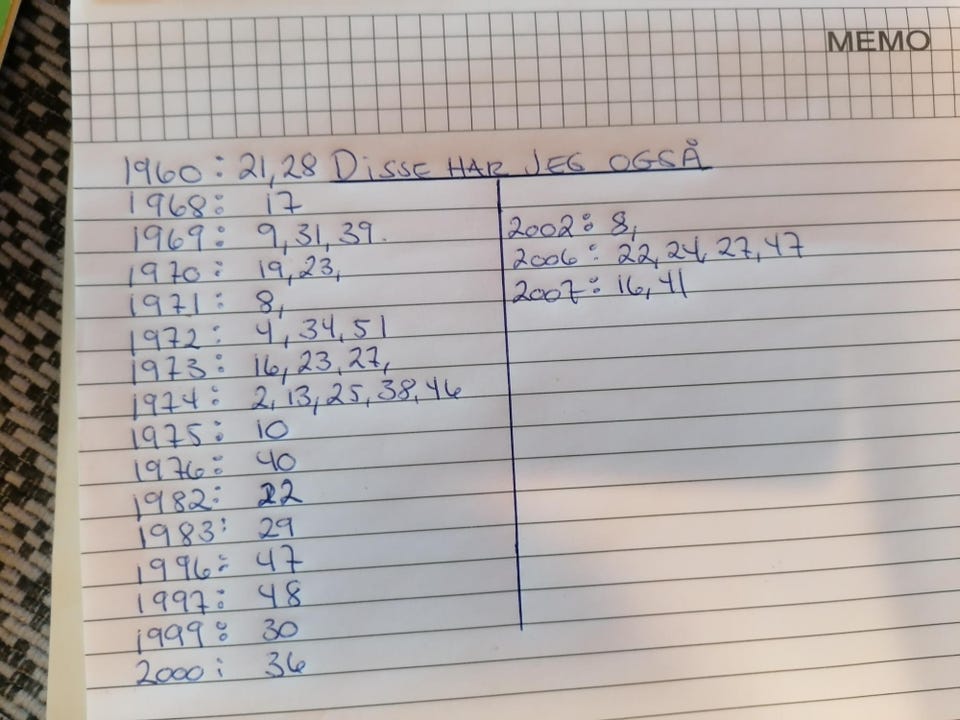 MEMO
1960: 21,28 DISSE HAR JEG OGSÅ
1968: 17
1969: 9,31,39.
1970: 19,23,
1971: 8,
1972: 4,34,51
1973: 16,23,27,
1974: 2,13,25,38,46
1975: 10
1976: 40
1982: 22
1983: 29
1996: 47
1997: 48
1999: 30
2000: 36
2002: 8,
2006: 22,24,27,47
2007: 16,41